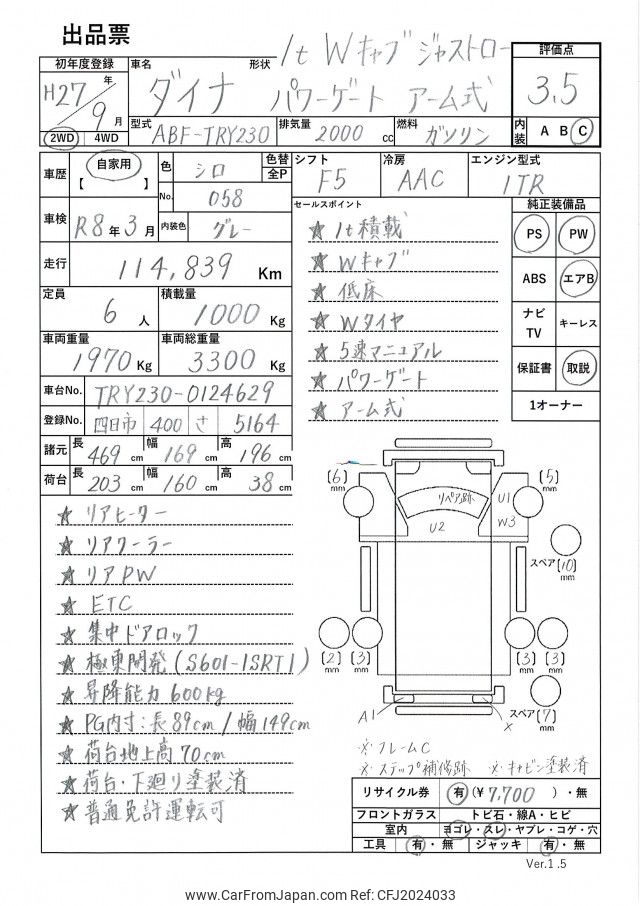 出品票
初年度登録
H27年
9月
2WD 4WD
車名 ダイナ
形状 1t Wキャブ ジャストロー
パワーゲート アーム式
型式 ABF-TRY230
排気量 2000 cc
燃料 ガソリン
評価点
3.5
内装 A B C
車歴 自家用
【 】
色 シロ
No. 058
色替
全P
内装色 グレー
シフト F5
冷房 AAC
エンジン型式 1TR
車検 R8年3月
走行 114,839 Km
定員 6 人
積載量 1000 Kg
車両重量 1970 Kg
車両総重量 3300 Kg
車台No. TRY230-0124629
登録No. 四日市 400 さ 5164
諸元 長 469 cm 幅 169 cm 高 196 cm
荷台 長 203 cm 幅 160 cm 高 38 cm
セールスポイント
★ 1t積載
★ Wキャブ
★ 低床
★ Wタイヤ
★ 5速マニュアル
★ パワーゲート
★ アーム式
純正装備品
PS PW
ABS エアB
ナビ
TV
キーレス
保証書 取説
1オーナー
★ リアヒーター
★ リアクーラー
★ リアPW
★ ETC
★ 集中ドアロック
★ 極東開発(S601-1SRT1)
★ 昇降能力600kg
★ PG内寸:長89cm/幅149cm
★ 荷台地上高70cm
★ 荷台・下廻り塗装済
★ 普通免許運転可
(6)
mm
(5)
mm
リペア跡
U1
U2
W3
スペア (10)
mm
(2)
mm
(3)
mm
(3)
mm
(3)
mm
スペア (7)
mm
A1
×
※フレームC
※ステップ補修跡 ※キャビン塗装済
リサイクル券 有 (¥7,700 )・無
フロントガラス トビ石・線A・ヒビ
室内 ヨゴレ・スレ・ヤブレ・コゲ・穴
工具 有・無 ジャッキ 有・無
Ver.1.5
www.CarFromJapan.com Ref: CFJ2024033